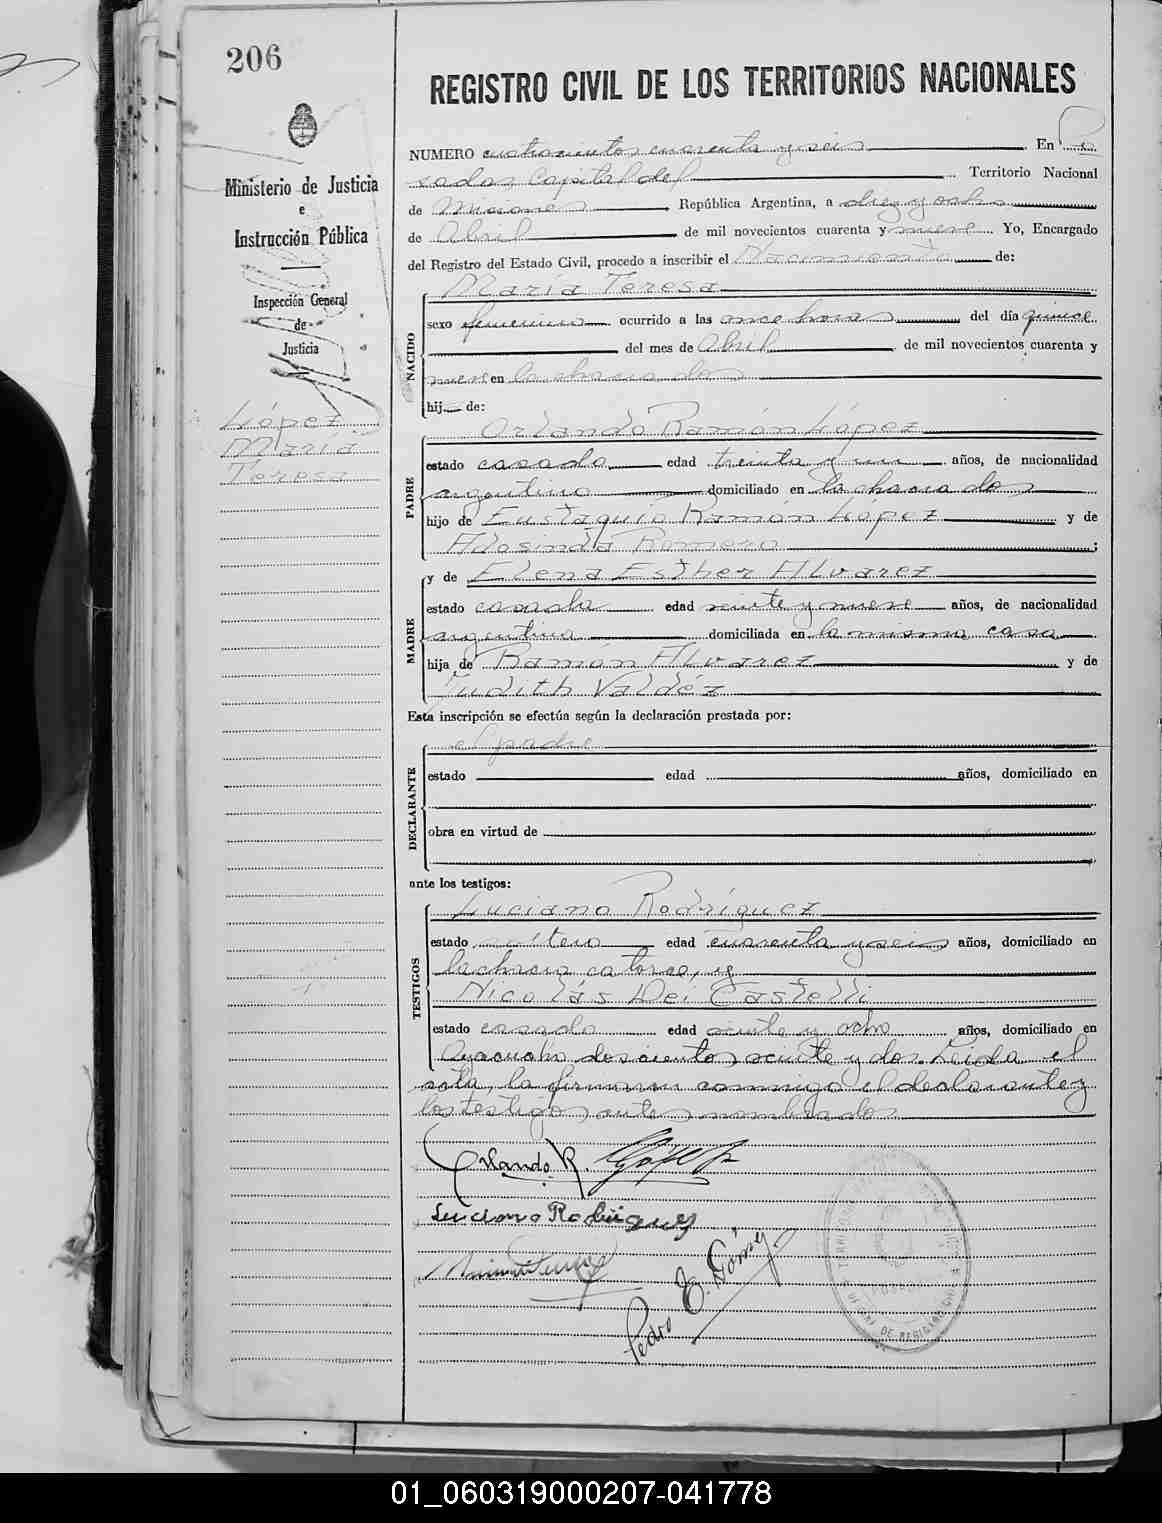 206
REGISTRO CIVIL DE LOS TERRITORIOS NACIONALES
Ministerio de Justicia
e
Instrucción Pública
Inspección General
de
Justicia
López
María
Teresa
NUMERO cuatrocientos cuarenta y seis En Po
sadas, Capital del Territorio Nacional
de Misiones República Argentina, a diez y ocho
de Abril de mil novecientos cuarenta y nueve Yo, Encargado
del Registro del Estado Civil, procedo a inscribir el Nacimiento de:
NACIDO
María Teresa
sexo femenino ocurrido a las once horas del día quince
del mes de Abril de mil novecientos cuarenta y
nueve en la chacra dos
hij de:
PADRE
Orlando Ramón López
estado casado edad treinta y un años, de nacionalidad
argentino domiciliado en la chacra dos
hijo de Eustaquio Ramón López y de
Adosinda Romero ;
MADRE
y de Elena Esther Alvarez
estado casada edad veinte y nueve años, de nacionalidad
argentina domiciliada en la misma casa
hija de Ramón Alvarez y de
Judith Valdéz
Esta inscripción se efectúa según la declaración prestada por:
DECLARANTE
el padre
estado edad años, domiciliado en
obra en virtud de
ante los testigos:
TESTIGOS
Luciano Rodríguez
estado soltero edad cuarenta y seis años, domiciliado en
la chacra catorce, y
Nicolás Dei Castelli
estado casado edad veinte y ocho años, domiciliado en
Ayacucho doscientos veinte y dos. Leída el
acta, la firmaron conmigo el declarante y
los testigos antes nombrados
Orlando R. López
Luciano Rodriguez
Pedro E. Gómez
01_060319000207-041778